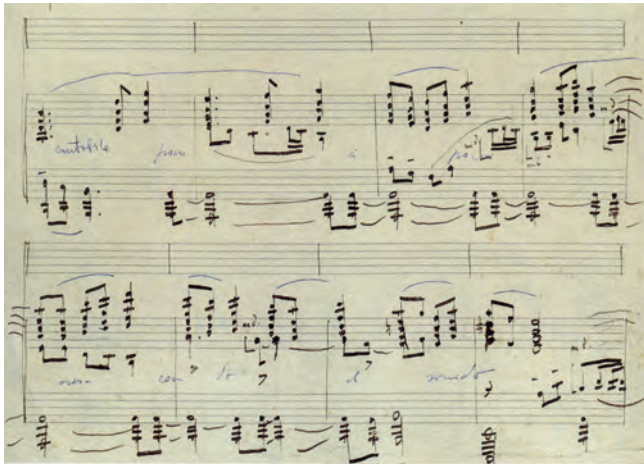 cantabile poco a poco
cres cen do el sonido